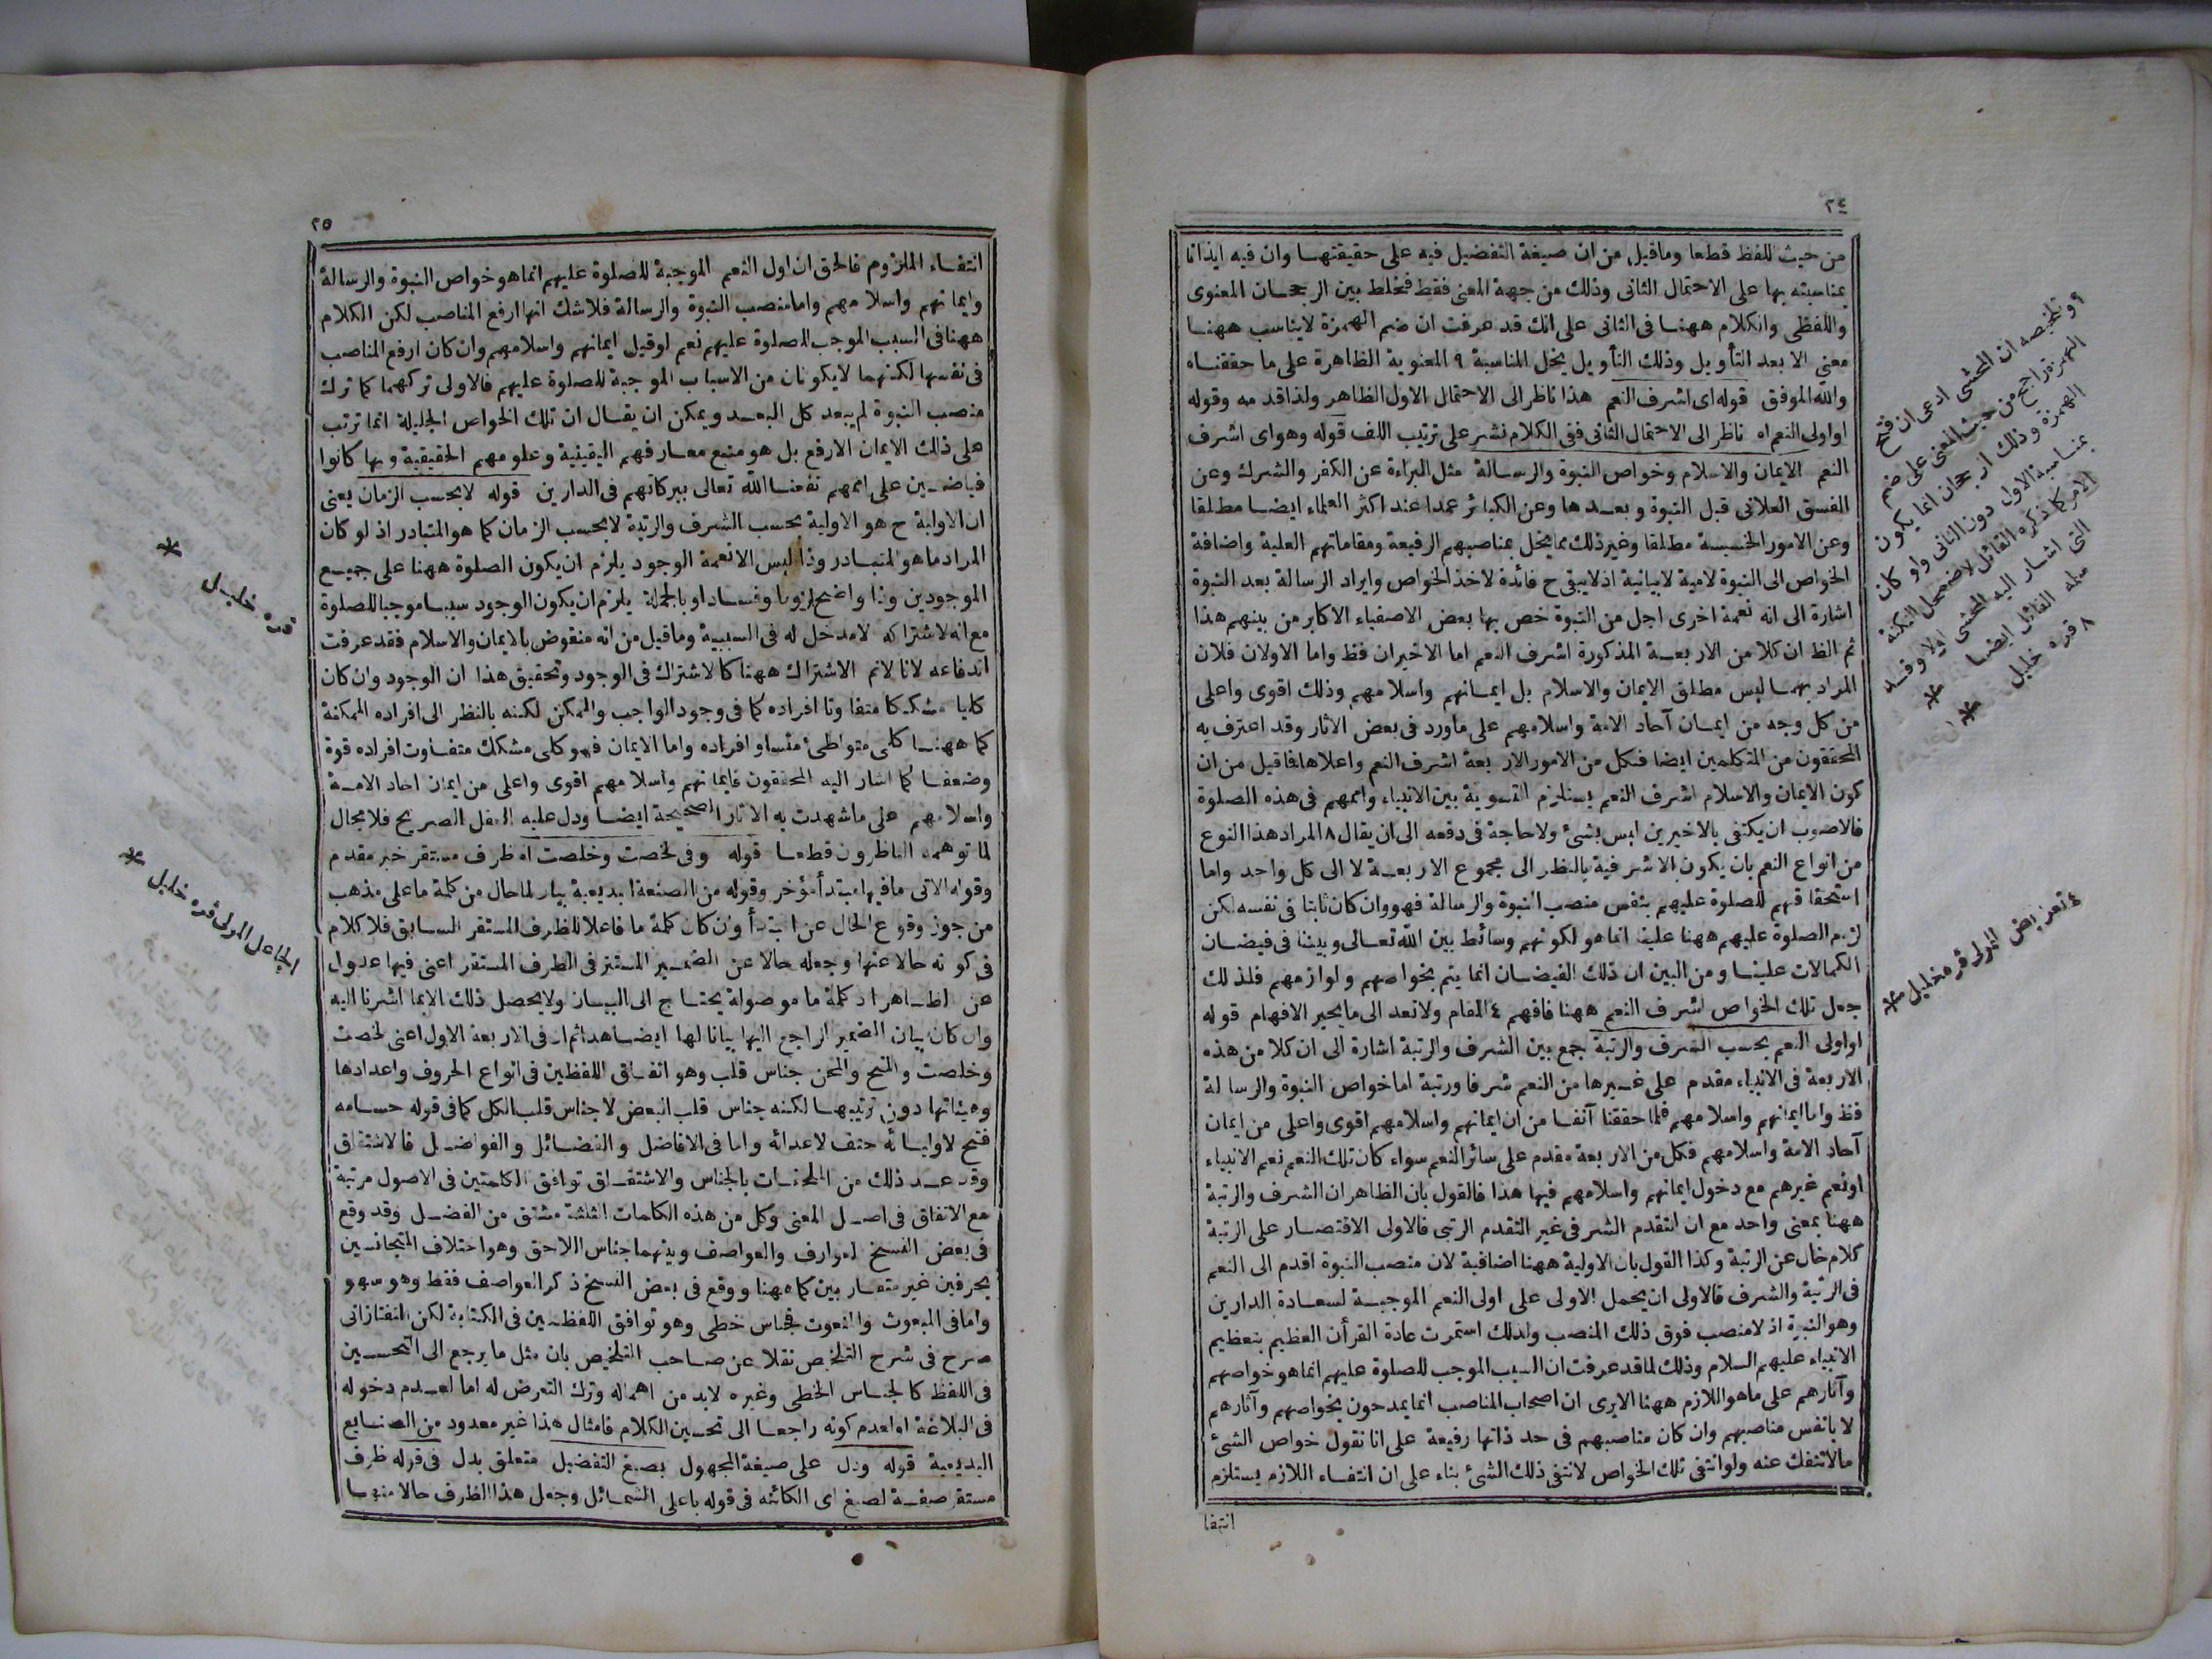 ٢٤
من حيث اللفظ قطعا وماقيل من ان صيغة التفضيل فيه على حقيقتهـا وان فيه ايذانا
بمناسبته بها على الاحتمال الثانى وذلك من جهة المعنى فقط فخلط بين الرجحـان المعنوى
واللفظى والكلام ههنـا فى الثانى على انك قد عرفت ان ضم الهمزة لايناسب ههنـا
معنى الا بعد التأويل وذلك التأويل يخل المناسبة ٩ المعنوية الظاهرة على ما حققنـاه
والله الموفق قوله اى اشرف النعم هذا ناظر الى الاحتمال الاول الظاهر ولذا قدمه وقوله
او اولى النعم اه ناظر الى الاحتمال الثانى ففى الكلام نشر على ترتيب اللف قوله وهو اى اشرف
النعم الايمان والاسلام وخواص النبوة والرسـالة مثل البراءة عن الكفر والشرك وعن
الفسق العلانى قبل النبوة وبعـدها وعن الكبائر عمدا عند اكثر العلماء ايضـا مطلقا
وعن الامور الخسيسة مطلقا وغير ذلك مما يخل بمناصبهم الرفيعة ومقاماتهم العلية واضافة
الخواص الى النبوة لامية لابيانية اذ لايبقى ح فائدة لاخذ الخواص وايراد الرسالة بعد النبوة
اشارة الى انه نعمة اخرى اجل من النبوة خص بها بعض الاصفياء الاكابر من بينهم هذا
ثم الظ ان كلا من الاربعـة المذكورة اشرف النعم اما الاخيران فظ واما الاولان فلان
المراد بهمـا ليس مطلق الايمان والاسلام بل ايمـانهم واسلامهم وذلك اقوى واعلى
من كل وجه من ايمـان آحاد الامة واسلامهم على ماورد فى بعض الاثار وقد اعترف به
المحققون من المتكلمين ايضا فكل من الامور الاربعة اشرف النعم واعلاها فاقيل من ان
كون الايمان والاسلام اشرف النعم يستلزم التسوية بين الانبياء واممهم فى هذه الصلوة
فالاصوب ان يكتفى بالاخيرين ليس بشئ ولاحاجة فى دفعه الى ان يقال ٨ المراد هذا النوع
من انواع النعم بان يكون الاشرفية بالنظر الى مجموع الاربعـة لا الى كل واحد واما
استحقاقهم للصلوة عليهم بنفس منصب النبوة والرسالة فهو وان كان ثابتا فى نفسه لكن
لزوم الصلوة عليهم ههنا علينا انما هو لكونهم وسائط بين الله تعـالى وبيننا فى فيضـان
الكمالات علينـا ومن البين ان ذلك الفيضـان انما يتم بخواصهم ولوازمهم فلذلك
جعل تلك الخواص اشرف النعم ههنا فافهم ٤ المقام ولا تعد الى ما يحير الافهام قوله
او اولى النعم بحسب الشرف والرتبة جمع بين الشرف والرتبة اشارة الى ان كلا من هذه
الاربعة فى الانبياء مقدم على غـيرها من النعم شرفا ورتبة اما خواص النبوة والرسالة
فظ واما ايمانهم واسلامهم فلما حققنا آنفـا من ان ايمانهم واسلامهم اقوى واعلى من ايمان
آحاد الامة واسلامهم فكل من الاربعة مقدم على سائر النعم سواء كان تلك النعم نعم الانبياء
او نعم غيرهم مع دخول ايمانهم واسلامهم فيها هذا فالقول بان الظاهر ان الشرف والرتبة
ههنا بمعنى واحد مع ان التقدم الشرفى غير التقدم الرتبى فالاولى الاقتصـار على الرتبة
كلام خال عن الرتبة وكذا القول بان الاولية ههنا اضافية لان منصب النبوة اقدم الى النعم
فى الرتبة والشرف فالاولى ان يحمل الاولى على اولى النعم الموجبـة لسعـادة الدارين
وهو النبوة اذ لا منصب فوق ذلك المنصب ولذلك استمرت عادة القرأن العظيم بتعظيم
الانبياء عليهم السلام وذلك لما قد عرفت ان السبب الموجب للصلوة عليهم انما هو خواصهم
وآثارهم على ماهو اللازم ههنا الايرى ان اصحاب المناصب انما يمدحون بخواصهم وآثارهم
لا بانفس مناصبهم وان كان مناصبهم فى حد ذاتها رفيعة على انا نقول خواص الشئ
مالا تنفك عنه ولو انتفى تلك الخواص لانتفى ذلك الشئ بناء على ان انتفـاء اللازم يستلزم
انتفا
٩ وتلخيصه ان المحشى ادعى ان فتح
الهمزة راجح من حيث المعنى على ضم
الهمزة وذلك الرجحان انما يكون
بمناسبة الاولى دون الثانى ولو كان
الامر كما ذكره القائل لاضمحل النكتة
التى اشار اليه المحشى اولا وقد
سلمه القائل ايضا *
٨ قره خليل *
٤ تعريض المولى قره خليل *
٢٥
انتفـاء الملزوم فالحق ان اول النعم الموجبة للصلوة عليهم انما هو خواص النبوة والرسالة
وايمانهم واسلامهم واما منصب النبوة والرسالة فلاشك انها ارفع المناصب لكن الكلام
ههنا فى السبب الموجب للصلوة عليهم نعم لو قيل ايمانهم واسلامهم وان كان ارفع المناصب
فى نفسها لكنهما لايكونان من الاسباب الموجبة للصلوة عليهم فالاولى تركهما كما ترك
منصب النبوة لم يبعد كل البعـد ويمكن ان يقـال ان تلك الخواص الجليلة انما ترتب
على ذلك الايمان الارفع بل هو منبع معـارفهم اليقينية وعلومهم الحقيقية وبها كانوا
فياضـين على اممهم نفعنـا الله تعالى ببركاتهم فى الدارين قوله لا بحسب الزمان يعنى
ان الاولية ح هو الاولية بحسب الشرف والرتبة لا بحسب الزمان كما هو المتبادر اذ لو كان
المراد ما هو المتبـادر وذا ليس الا نعمة الوجود يلزم ان يكون الصلوة ههنا على جميـع
الموجودين وذا واضح لزوما وفسـادا وبالجملة يلزم ان يكون الوجود سببـا موجبا للصلوة
مع انه لاشتراكه لامدخل له فى السببية وماقيل من انه منقوض بالايمان والاسلام فقد عرفت
اندفاعه لانا لانم الاشتراك ههنا كالاشتراك فى الوجود وتحقيق هذا ان الوجود وان كان
كليا مشككا متفاوتا افراده كما فى وجود الواجب والممكن لكنه بالنظر الى افراده الممكنة
كما ههنـا كلى متواطئ متساو افراده واما الايمان فهو كلى مشكك متفـاوت افراده قوة
وضعفـا كما اشار اليه المحققون فايمانهم واسلامهم اقوى واعلى من ايمان احاد الامـة
واسلامهم على ما شهدت به الاثار الصحيحة ايضـا ودل عليه العقل الصريح فلا مجال
لما توهمه الناظرون قطعـا قوله وفى لخصت وخلصت اه ظرف مستقر خبر مقدم
وقوله الاتى مافيها مبتدأ مؤخر وقوله من الصنعة البديعية بيان لما حال من كلمة ما على مذهب
من جوز وقوع الحال عن المبتدأ وان كان كلمة ما فاعلا للظرف المستقر السابق فلا كلام
فى كونه حالا عنها وجعله حالا عن الضمـير المستتر فى الظرف المستقر اعنى فيها عدول
عن الظـاهر اذ كلمة ما موصولة يحتـاج الى البيـان ولا يحصل ذلك الا بما اشرنا اليه
وان كان بيان الضمير الراجع اليها بيانا لها ايضـا هذا ثم ان فى الاربعة الاول اعنى لخصت
وخلصت والمنح والمحن جناس قلب وهو اتفـاق اللفظين فى انواع الحروف واعدادها
وهيئاتها دون ترتيبهـا لكنه جناس قلب البعض لا جناس قلب الكل كما فى قوله حسـامه
فتح لاوليـائه حتف لاعدائه واما فى الافاضل والفضـائل والفواضـل فالاشتقاق
وقد عـد ذلك من الملحقـات بالجناس والاشتقـاق توافق الكلمتين فى الاصول مرتبة
مع الاتفاق فى اصـل المعنى وكل من هذه الكلمات الثلثة مشتق من الفضـل وقد وقع
فى بعض النسخ لعوارف والعواصف وبينهما جناس اللاحق وهو اختلاف المتجانسين
بحرفين غير متقـاربين كما ههنا ووقع فى بعض النسخ ذكر العواصف فقط وهو سهو
واما فى المبعوث والنعوت فجناس خطى وهو توافق اللفظـين فى الكتابة لكن التفتازانى
صرح فى شرح التلخيص نقلا عن صـاحب التلخيص بان مثل ما يرجع الى التحسـين
فى اللفظ كالجنـاس الخطى وغيره لابد من اهماله وترك التعرض له اما لعـدم دخوله
فى البلاغة او لعدم كونه راجعـا الى تحسـين الكلام فامثال هذا غير معدود من الصنـايع
البديعية قوله ودل على صيغة المجهول بصيغ التفضيل متعلق بدل فى قوله ظرف
مستقر صفـة لصيغ اى الكائنه فى قوله باعلى الشمـائل وجعل هذا الظرف حالا منهـا
قره خليـل *
الجاعل المولى قره خليل *